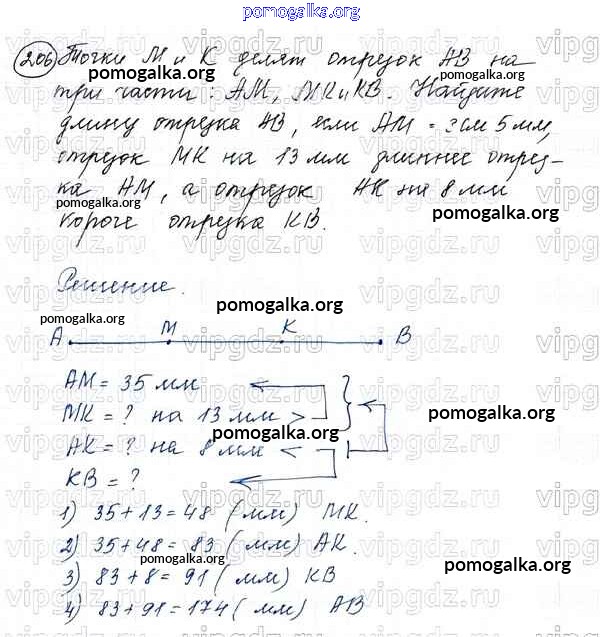 pomogalka.org
206 Точки М и К делят отрезок АВ на
pomogalka.org
три части: АМ, МК и КВ. Найдите
длину отрезка АВ, если АМ = 3см 5мм,
pomogalka.org
отрезок МК на 13 мм длиннее отрез-
ка АМ, а отрезок АК на 8 мм
pomogalka.org
короче отрезка КВ.
Решение.
pomogalka.org
pomogalka.org
А М К В
АМ = 35 мм
МК = ? на 13 мм >
pomogalka.org
pomogalka.org
АК = ? на 8 мм <
КВ = ?
1) 35+13=48 (мм) МК.
2) 35+48= 83 (мм) АК.
pomogalka.org
pomogalka.org
3) 83+8=91 (мм) КВ
4) 83+91=174 (мм) АВ
pomogalka.org
vipgdz.ru